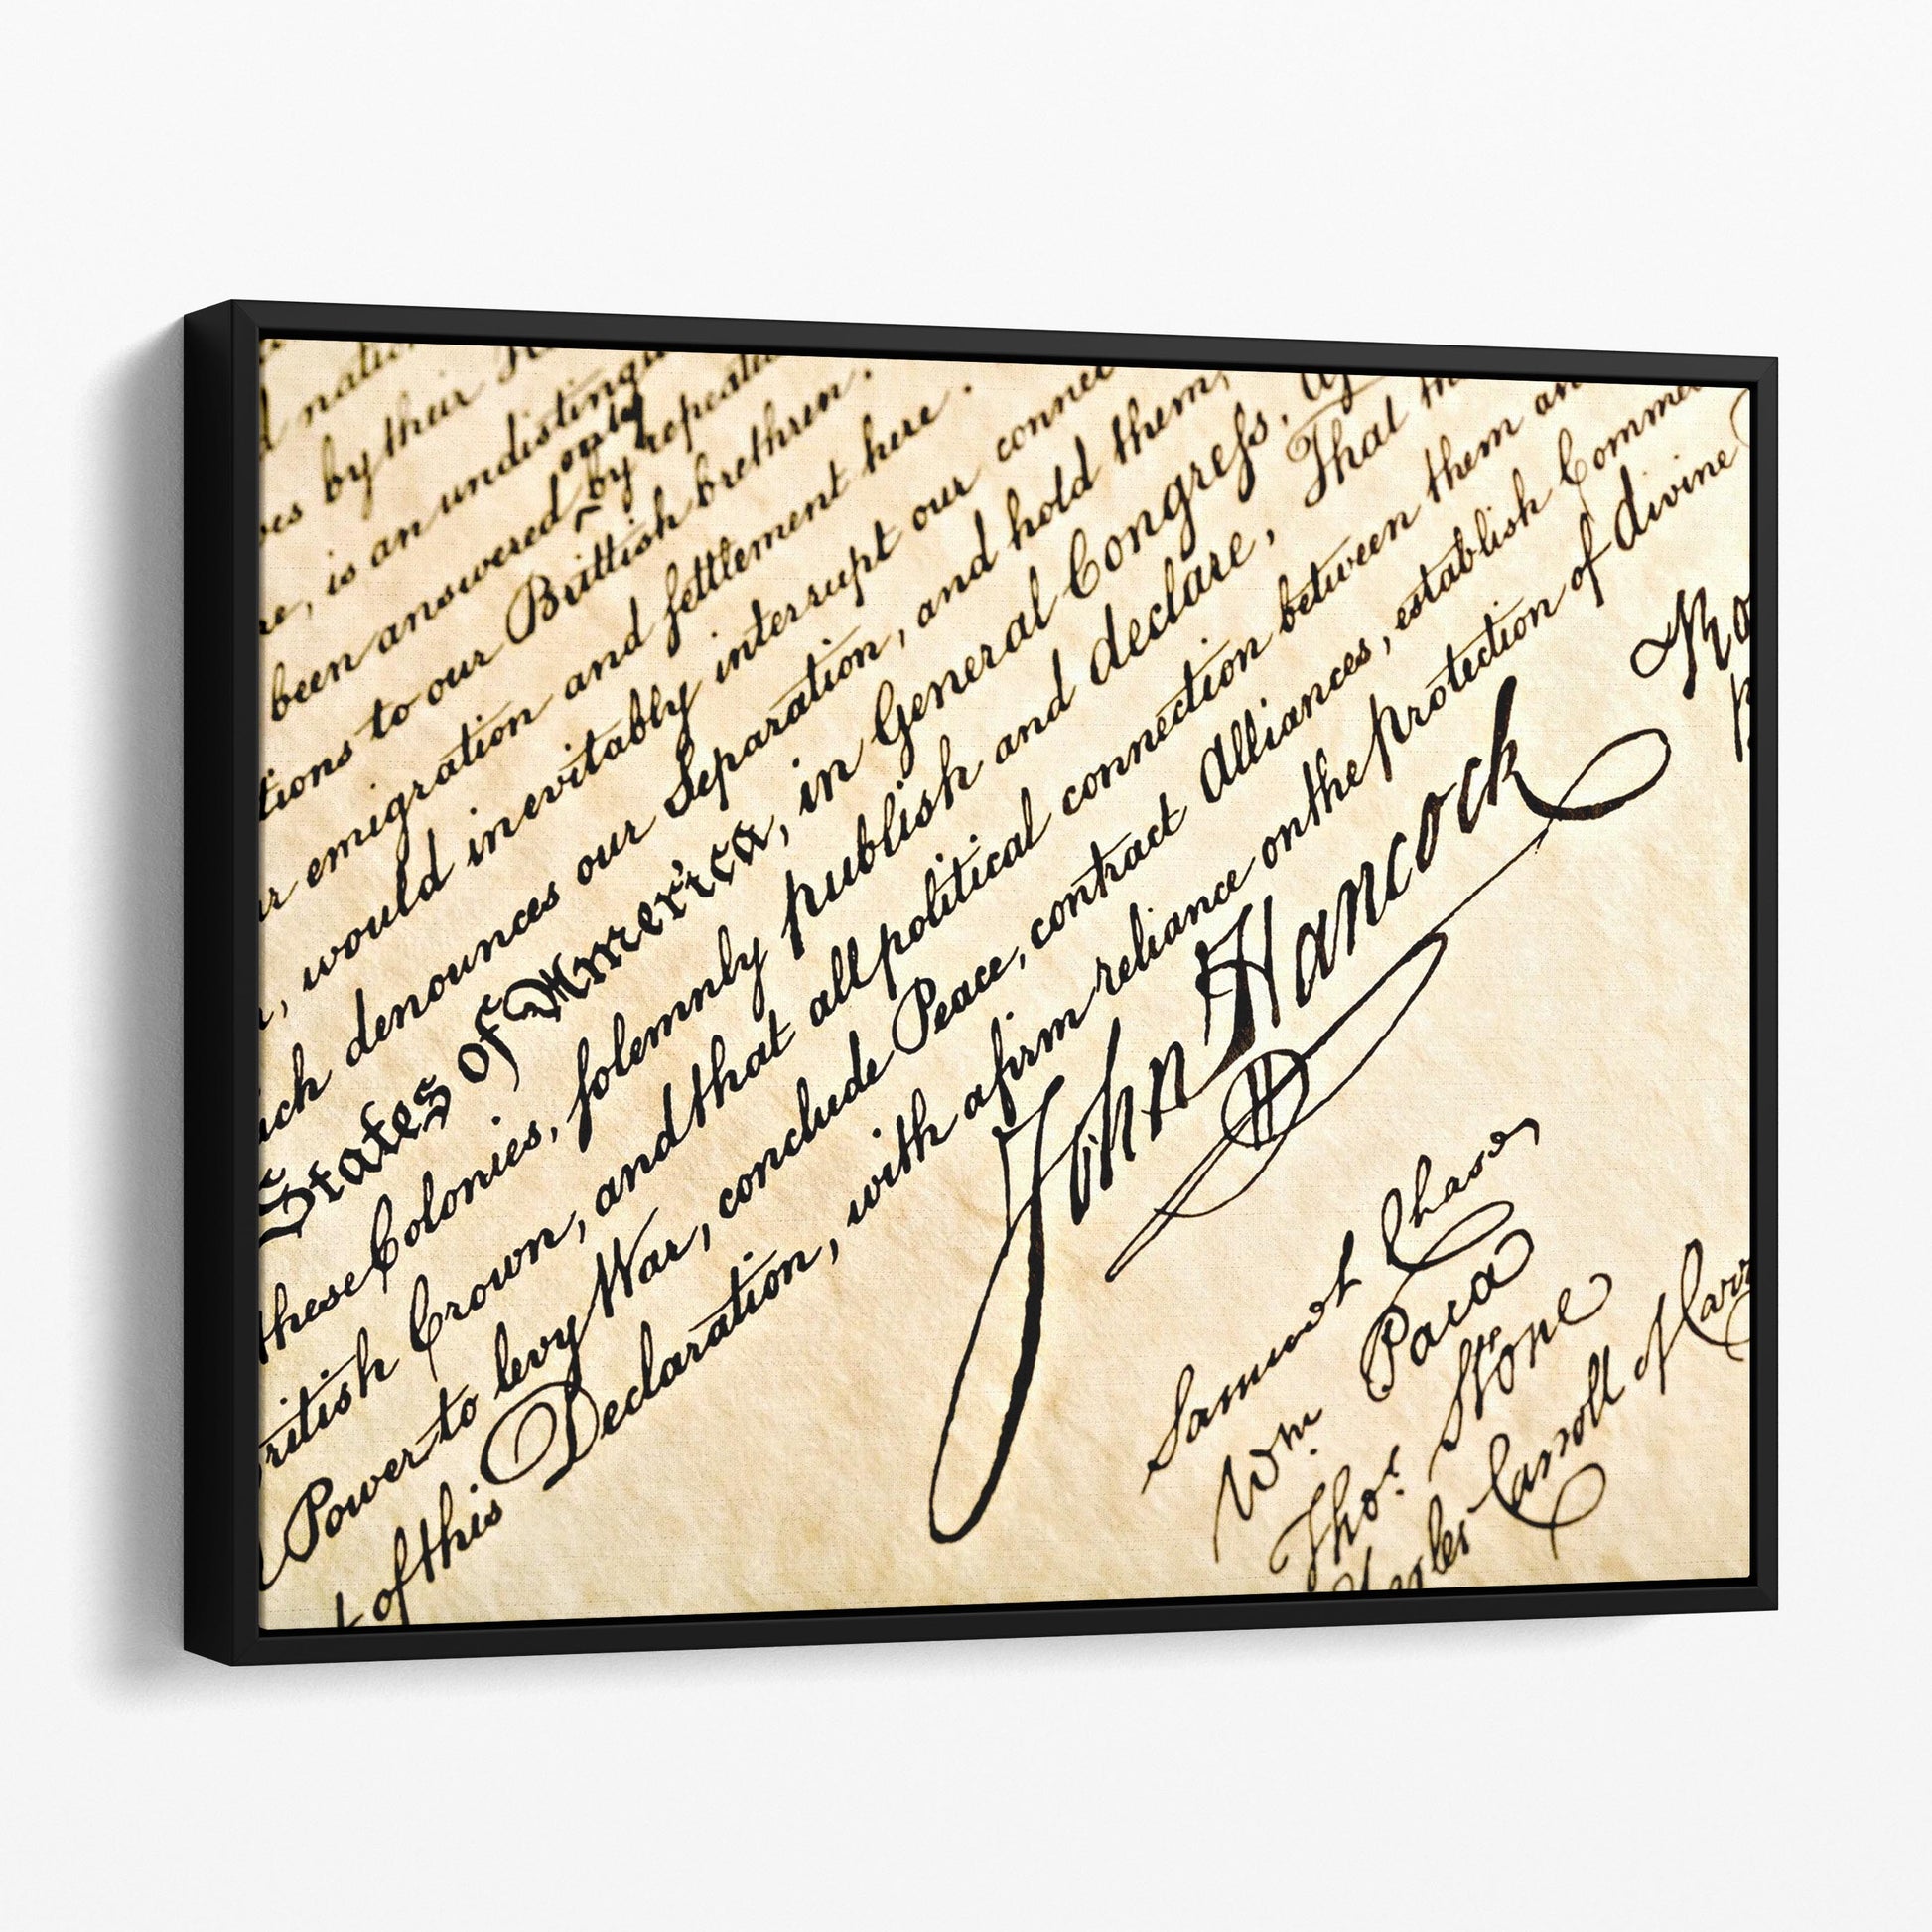 d natu
ves by their
re, is an undistingu
only
been answered by repeate
tions to our Brittish brethren.
ur emigration and ſettlement here.
, would inevitably interrupt our connec
ich denounces our Separation, and hold them,
States of America, in General Congreſs,
these Colonies, ſolemnly publish and declare, That th
ritish Crown, and that all political connection between them an
Power to levy War, conclude Peace, contract Alliances, establish Comme
t of this Declaration, with a firm reliance on the protection of divine
John Hancock
Ro
Samuel Chase
Wm. Paca
Thos. Stone
arles Carroll of Carr